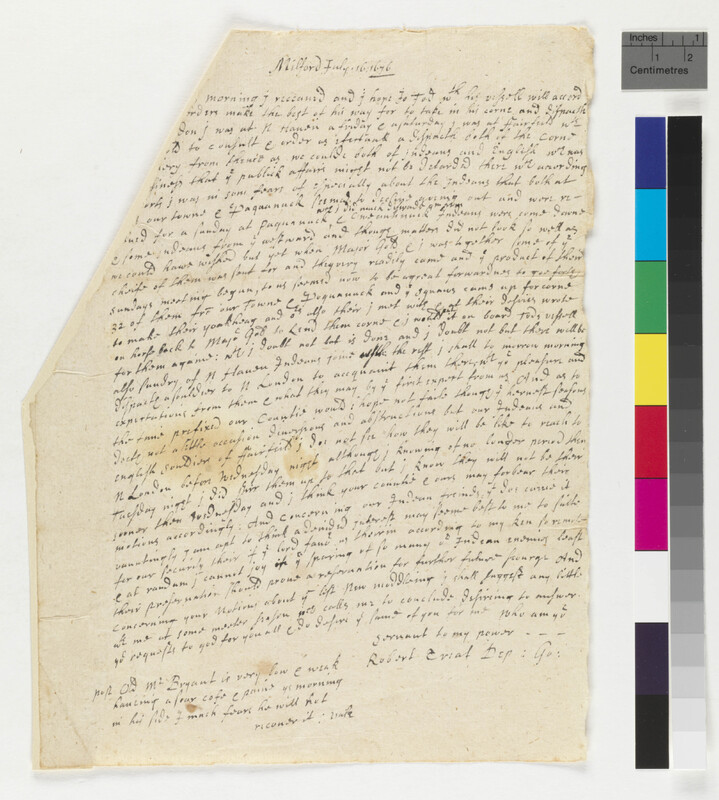 Milford July. 16. 1676
morning j receaued and j hope Jo Tod wth his vessell will accord
orders make the best of his way for to take in his corne and dispatch
don j was at N Hauen a friday & a saturday j was at fairfeild wth
to consult & order as afterbank a dispatch both of the corne
from thence as we coulde both of indeans and English
finess that ye publick affairs miugt not be retarded there
j was in som fears of especially about the Indeans that both at
our towne & Paquanuck seemed to giving out and were re-
for a sunday at paquanuck, & Cweponnuck Indeans were come downe
& some indeans from ye westward and though matters did not look so well as
we could haue wished but yet when Major Gold & j was together some of ye
cheife of them was sent for and they very readily came and ye product of their
sundays meeting began, to us seemed now to be a great forwardnes to goe forth
32 of them frō our Towne & Pequanuck and ye squaws came up for corne
to make their yoakheag and others also there j met with at their desires wrote
on horsback to Majr Gold to Lend them corne & j would on board Tods vessell
for them againe: wch j doubt not but is done and j doubt not but there will be
also sundry of N Hauen Indeans joine with the rest j shall to morrow morning
dispatch a souldier to N London to acquaint them therewth ye pleasure and
expectations from them & what they may by ye first expect from us And as to
the time prefixed our Countie would j hope not faile though ye heruest season
doth not a little occasion diuersions and obstructions but our Indeans and
english souldiers of fairfeild j doe not see how they will be like to reach to
N London before Wednesday night although j knowing of no longer period then
Tuesday night j did stirr them up to that but j know they will not be there
sooner then Wednesday and j think your countie & ours may forbear their
motions accordingly: And concerning our Indean freinds, j dos conceiue it
j am apt to think a deuided interest may seeme best to me to suite
for our security their if ye lord save us therein according to my ken so remise
& at randum j cannot joy in ye spareing of so many of Indean enemies least
their preseruation should proue a reseruation for further future scourge And
concerning your Motions about ye lest New j shall suggest any little
wth me at some meeter season calls me to conclude desireing to answer
yor requests to god for you all & do desire ye same of you for me who am yor
servant to my power - - -
Robert Treat Dep : Go:
post Old Mr Bryant is very low & weak
haueing a sour cofe & paine ys morning
in his side j much feare he will not
recouer it : vale
Inches 1
1 2
Centimetres